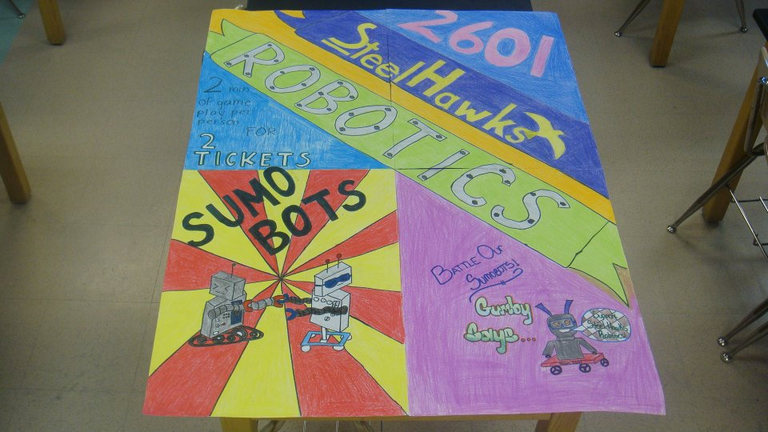 2601
SteelHawks
ROBOTICS
2 min
of game
play per
person
FOR
2
TICKETS
SUMO
BOTS
BATTLE OUR
SUMOBOTS!
Gumby
Says...